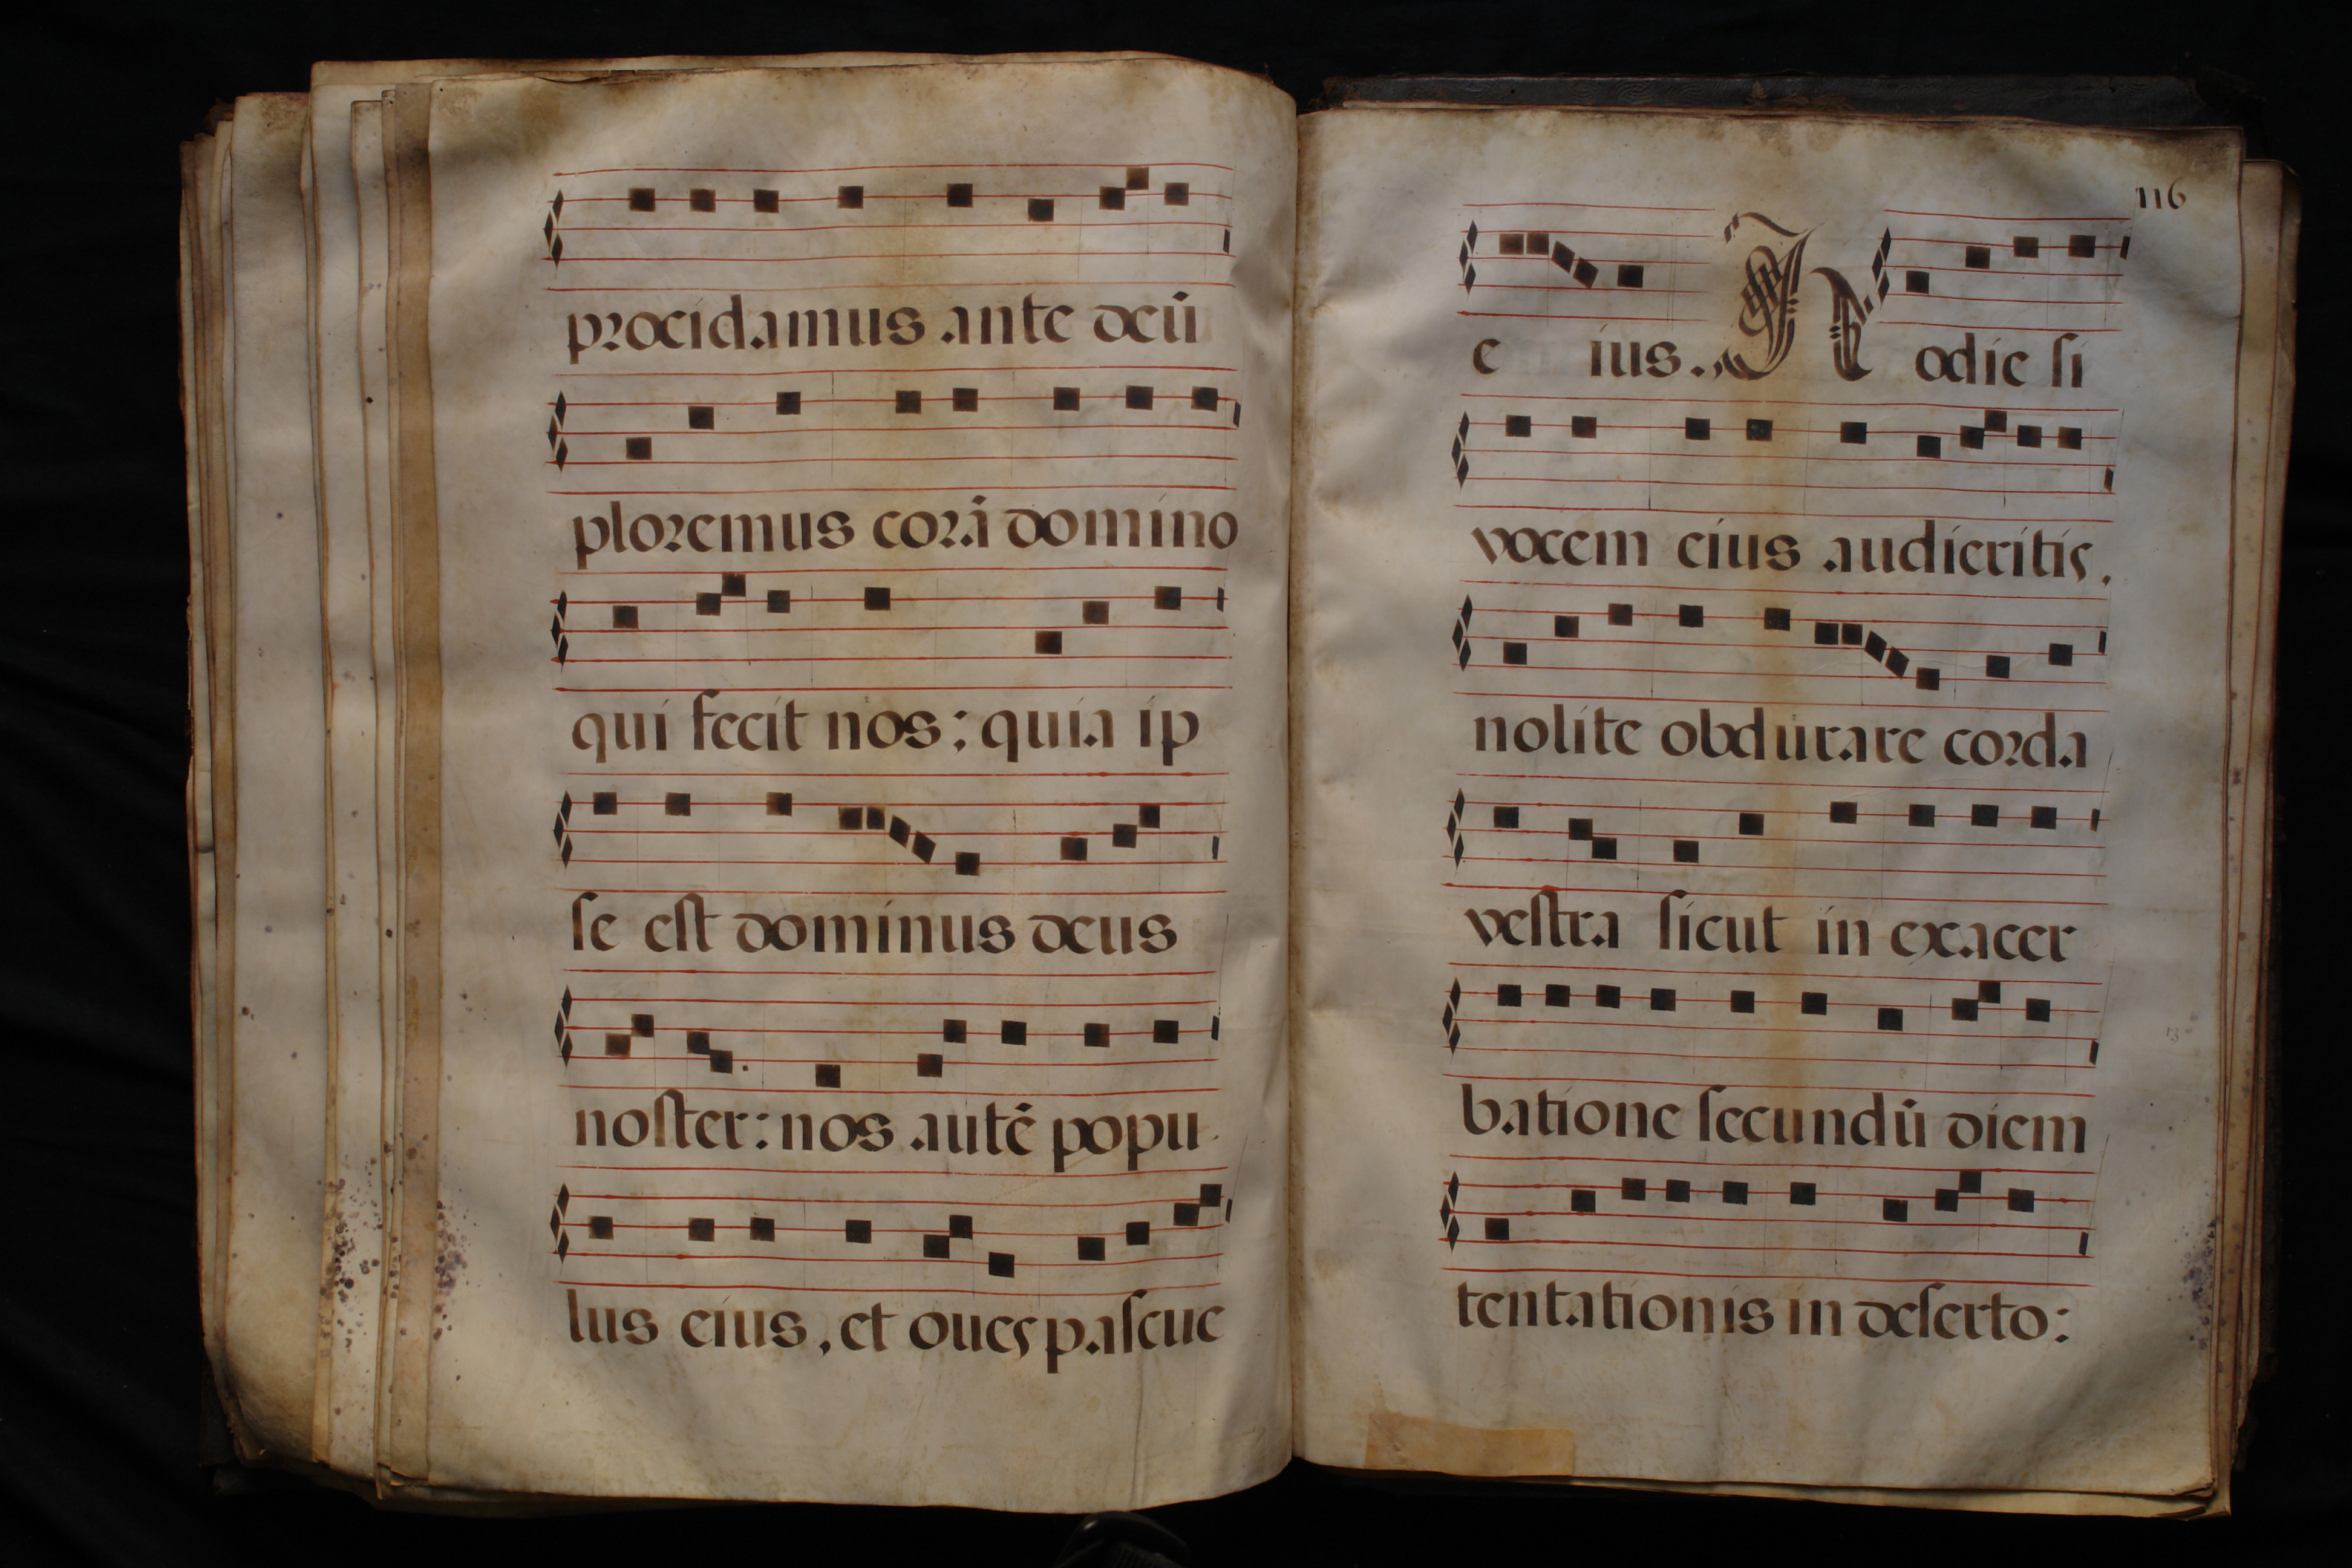 procidamus ante deũ
ploremus corã domino
qui fecit nos: quia ip
ſe eſt dominus deus
noſter: nos autẽ popu
lus eius, et oues paſcue
116
e ius. Hodie ſi
vocem eius audieritis,
nolite obdurare corda
veſtra ſicut in exacer
batione ſecundũ diem
13
tentationis in deſerto: